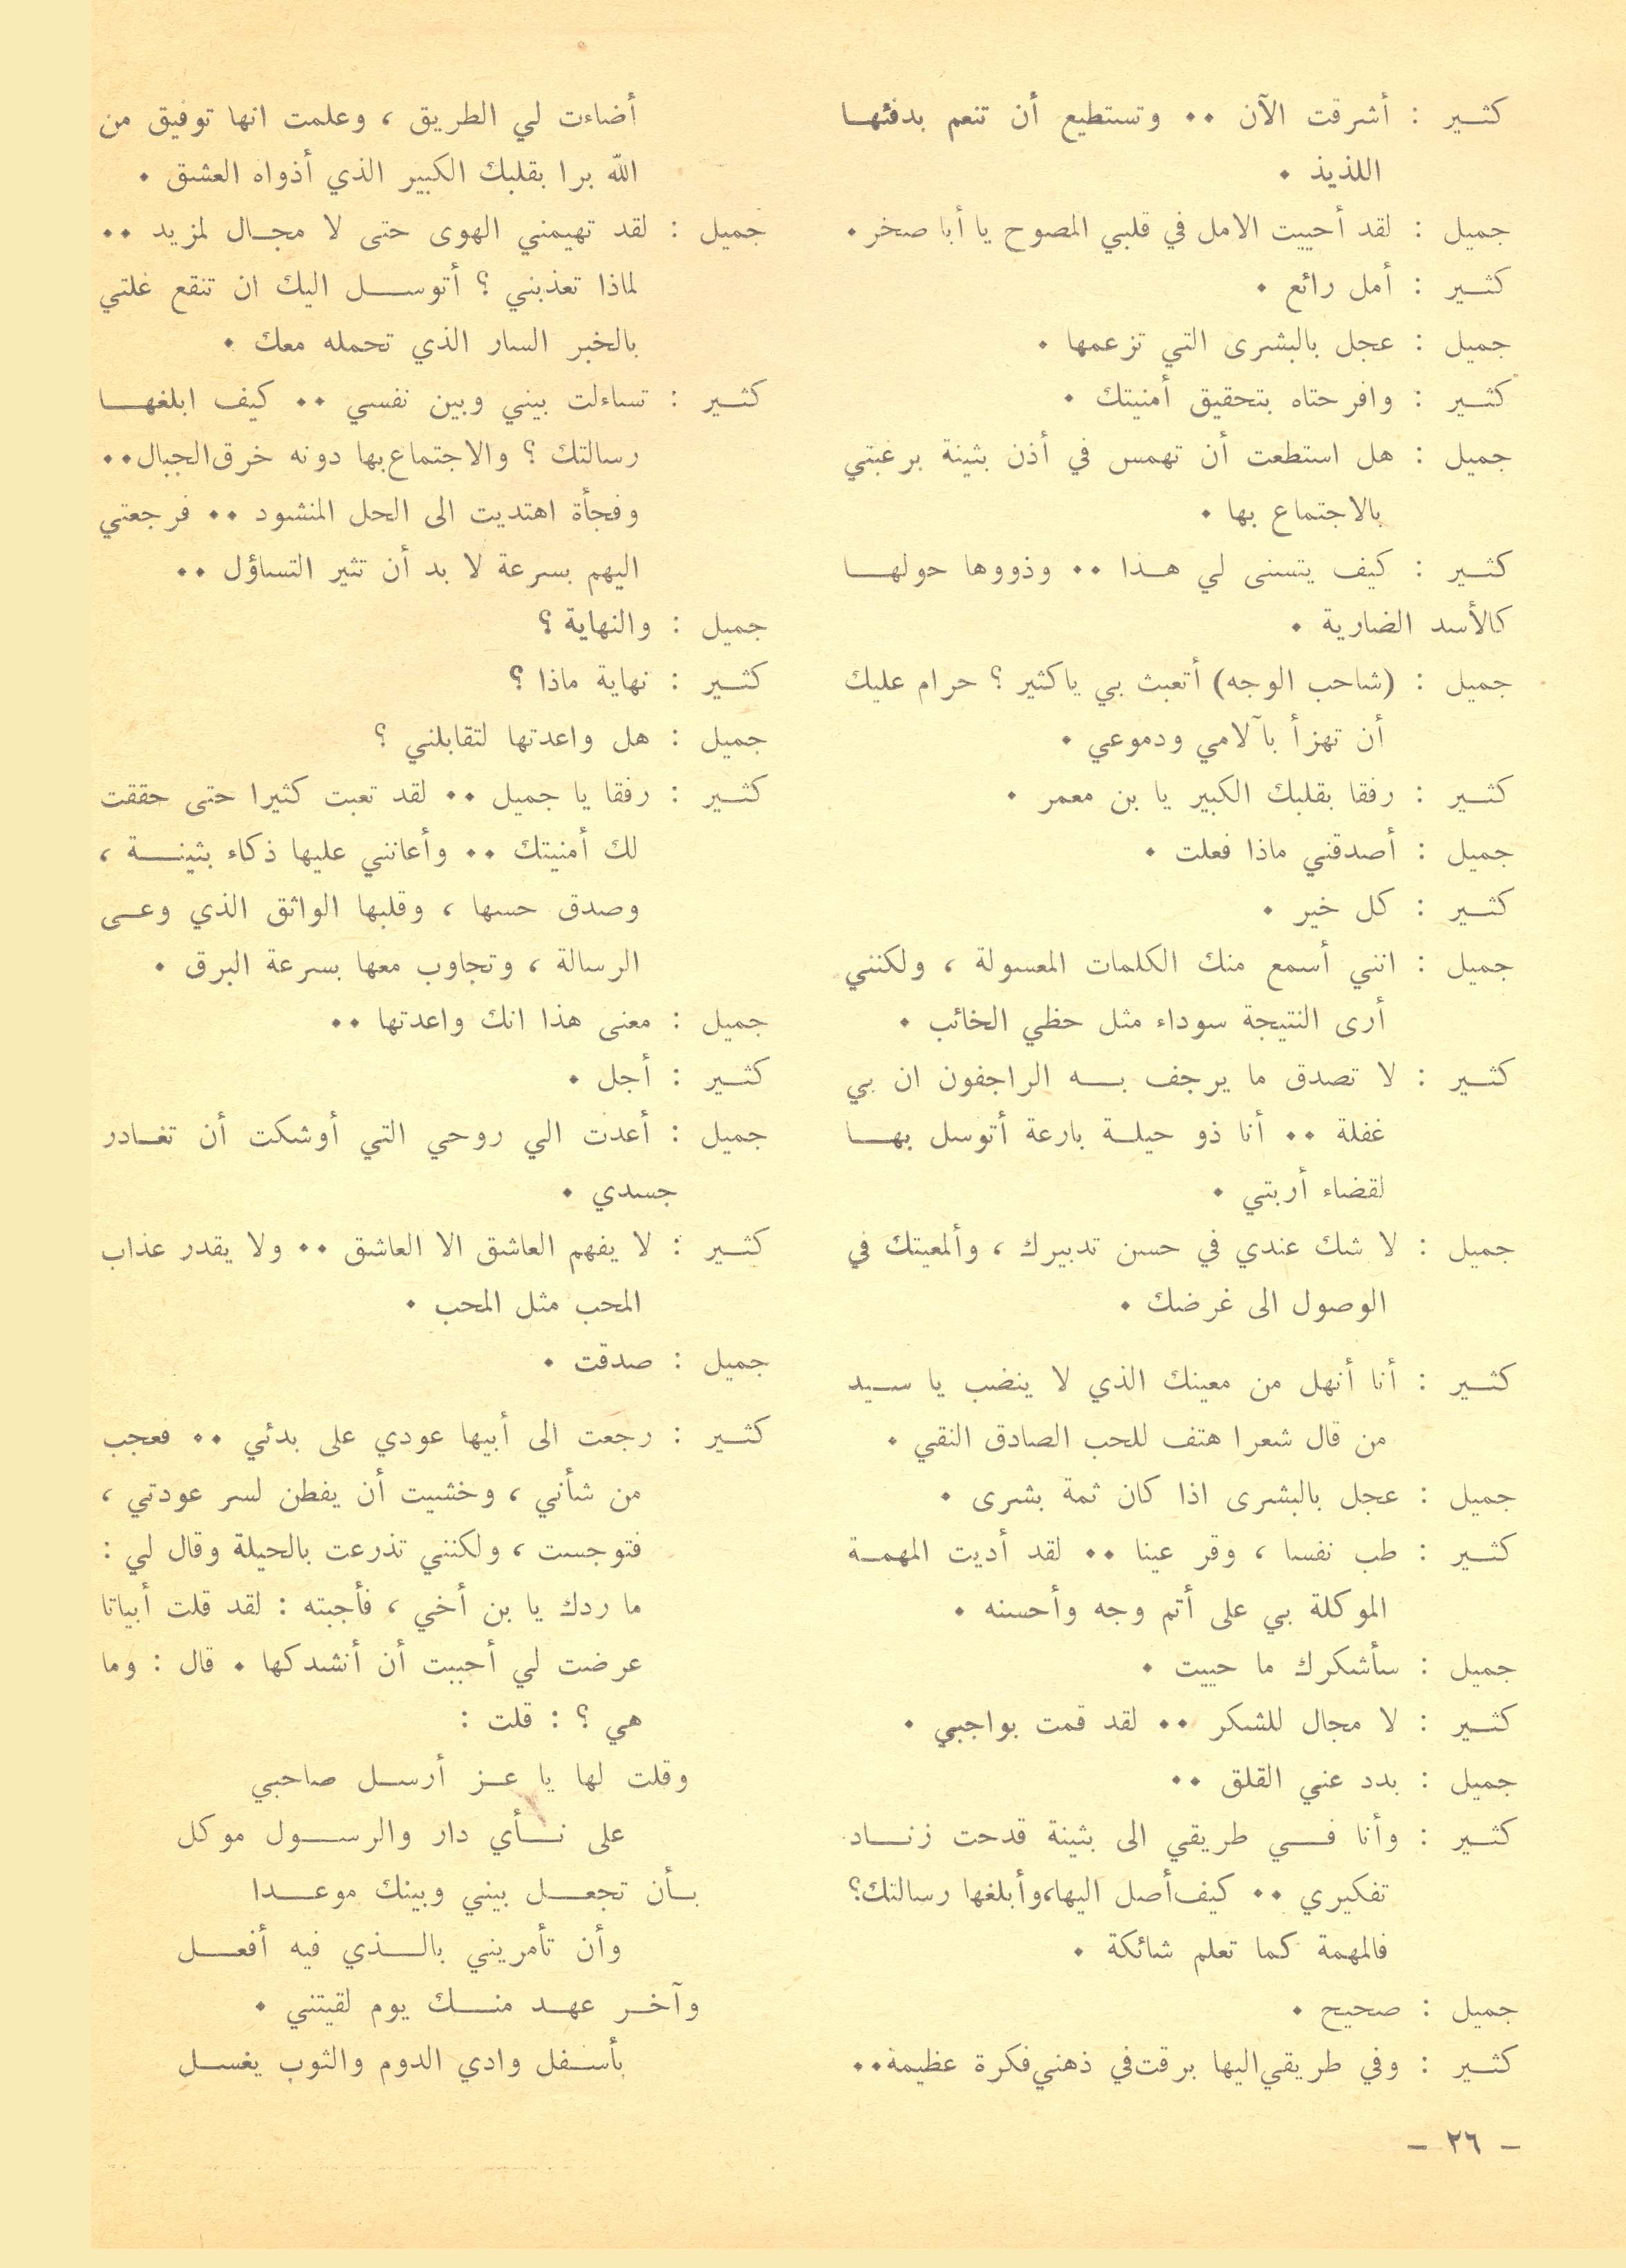 كثير : أشرقت الآن ٠٠ وتستطيع أن تنعم بدفئها
اللذيذ ٠
جميل : لقد أحييت الامل في قلبي المصوح يا أبا صخر ٠
كثير : أمل رائع ٠
جميل : عجل بالبشرى التي تزعمها ٠
كثير : وافرحتاه بتحقيق أمنيتك ٠
جميل : هل استطعت أن تهمس في أذن بثينة برغبتي
بالاجتماع بها ٠
كثير : كيف يتسنى لي هذا ٠٠ وذووها حولها
كالأسد الضارية ٠
جميل : (شاحب الوجه) أتعبث بي ياكثير ؟ حرام عليك
أن تهزأ بآلامي ودموعي ٠
كثير : رفقا بقلبك الكبير يا بن معمر ٠
جميل : أصدقني ماذا فعلت ٠
كثير : كل خير ٠
جميل : انني أسمع منك الكلمات المعسولة ، ولكنني
أرى النتيجة سوداء مثل حظي الخائب ٠
كثير : لا تصدق ما يرجف به الراجفون ان بي
غفلة ٠٠ أنا ذو حيلة بارعة أتوسل بها
لقضاء أربتي ٠
جميل : لا شك عندي في حسن تدبيرك ، وألمعيتك في
الوصول الى غرضك ٠
كثير : أنا أنهل من معينك الذي لا ينضب يا سيد
من قال شعرا هتف للحب الصادق النقي ٠
جميل : عجل بالبشرى اذا كان ثمة بشرى ٠
كثير : طب نفسا ، وقر عينا ٠٠ لقد أديت المهمة
الموكلة بي على أتم وجه وأحسنه ٠
جميل : سأشكرك ما حييت ٠
كثير : لا مجال للشكر ٠٠ لقد قمت بواجبي ٠
جميل : بدد عني القلق ٠٠
كثير : وأنا في طريقي الى بثينة قدحت زناد
تفكيري ٠٠ كيف أصل اليها، وأبلغها رسالتك؟
فالمهمة كما تعلم شائكة ٠
جميل : صحيح ٠
كثير : وفي طريقي اليها برقت في ذهني فكرة عظيمة ٠٠
أضاءت لي الطريق ، وعلمت انها توفيق من
الله برا بقلبك الكبير الذي أذواه العشق ٠
جميل : لقد تهيمني الهوى حتى لا مجال لمزيد ٠٠
لماذا تعذبني ؟ أتوسل اليك ان تنقع غلتي
بالخبر السار الذي تحمله معك ٠
كثير : تساءلت بيني وبين نفسي ٠٠ كيف ابلغها
رسالتك ؟ والاجتماع بها دونه خرق الجبال ٠٠
وفجأة اهتديت الى الحل المنشود ٠٠ فرجعتي
اليهم بسرعة لا بد أن تثير التساؤل ٠٠
جميل : والنهاية ؟
كثير : نهاية ماذا ؟
جميل : هل واعدتها لتقابلني ؟
كثير : رفقا يا جميل ٠٠ لقد تعبت كثيرا حتى حققت
لك أمنيتك ٠٠ وأعانني عليها ذكاء بثينة ،
وصدق حسها ، وقلبها الواثق الذي وعى
الرسالة ، وتجاوب معها بسرعة البرق ٠
جميل : معنى هذا انك واعدتها ٠٠
كثير : أجل ٠
جميل : أعدت الي روحي التي أوشكت أن تغادر
جسدي ٠
كثير : لا يفهم العاشق الا العاشق ٠٠ ولا يقدر عذاب
المحب مثل المحب ٠
جميل : صدقت ٠
كثير : رجعت الى أبيها عودي على بدئي ٠٠ فعجب
من شأني ، وخشيت أن يفطن لسر عودتي ،
فتوجست ، ولكنني تذرعت بالحيلة وقال لي :
ما ردك يا بن أخي ، فأجبته : لقد قلت أبياتا
عرضت لي أحببت أن أنشدكها ٠ قال : وما
هي ؟ : قلت :
وقلت لها يا عز أرسل صاحبي
على نأي دار والرسول موكل
بأن تجعل بيني وبينك موعدا
وأن تأمريني بالذي فيه أفعل
وآخر عهد منك يوم لقيتني ٠
بأسفل وادي الدوم والثوب يغسل
– ٢٦ –